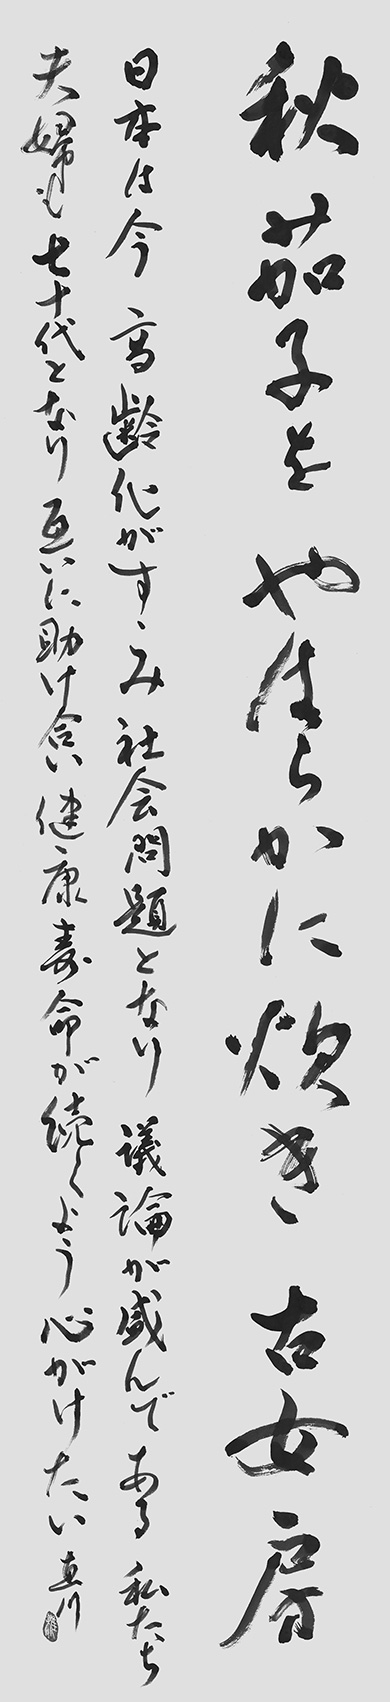 秋茄子をやはらかに炊き古女房
日本は今高齢化がすゝみ社会問題となり議論が盛んである私たち
夫婦も七十代となり互いに助け合い健康寿命が続くよう心がけたい 直川